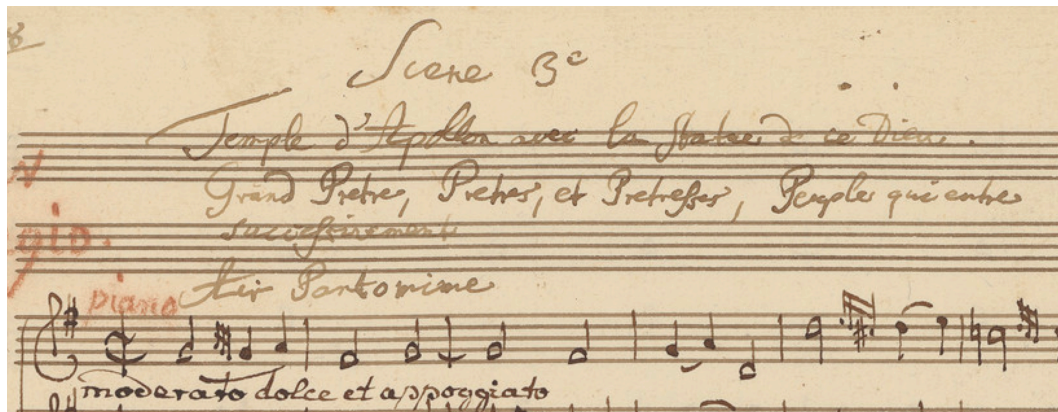 Scene 3e
Temple d'Apollon avec la statue de ce Dieu.
Grand Pretre, Pretres, et Pretresses, Peuples qui entre
successivement
piano Air Pantomime
moderato dolce et appoggiato